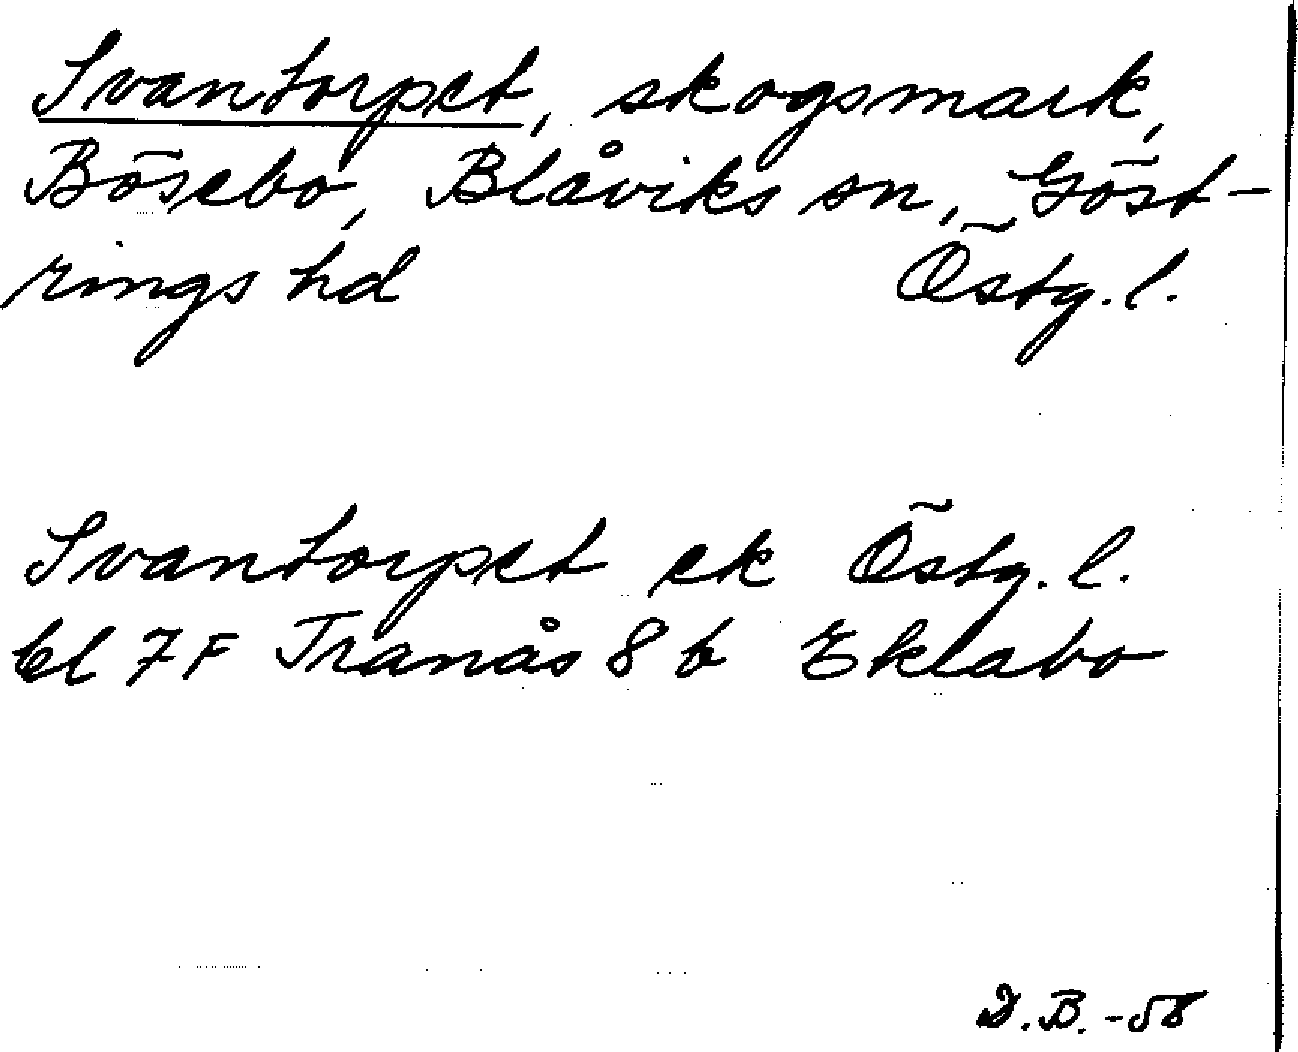 Svantorpet, skogsmark,
Bösebo, Blåviks sn, Göst-
rings hd Östg. l.
Svantorpet ek Östg. l.
bl 7 F Tranås 8 b Eklabo
D.B. -58